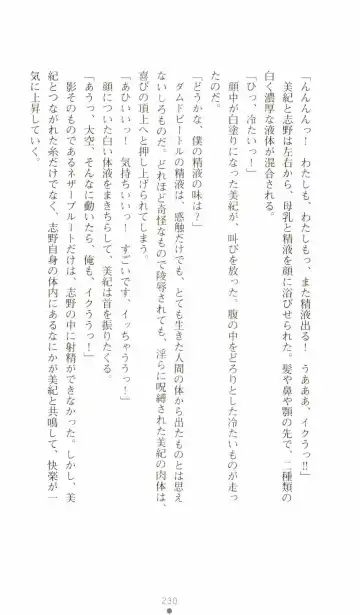 「んんんんっ！　わたしも、わたしもっ、また精液出る！　うあああ、イクうっ‼」
　美紀と志野は左右から、母乳と精液を顔に浴びせられた。髪や鼻や顎の先で、二種類の
白く濃厚な液体が混合される。
「ひっ、冷たいっ！」
　顔中が白塗りになった美紀が、叫びを放った。腹の中をどろりとした冷たいものが走っ
たのだ。
「どうかな、僕の精液の味は？」
　ダムドビートルの精液は、感触だけでも、とても生きた人間の体から出たものとは思え
ないしろものだ。どれほど奇怪なもので陵辱されても、淫らに呪縛された美紀の肉体は、
喜びの頂上へと押し上げられてしまう。
「あひいいっ！　気持ちいいいっ！　すごいです、イッちゃううっ！」
　顔についた白い体液をまきちらして、美紀は首を振りたくる。
「あうっ、大空、そんなに動いたら、俺も、イクううっ！」
　影そのものであるネザーブルートだけは、志野の中に射精ができなかった。しかし、美
紀とつながれた糸だけでなく、志野自身の体内にあるなにかが美紀と共鳴して、快楽が一
気に上昇していく。
230